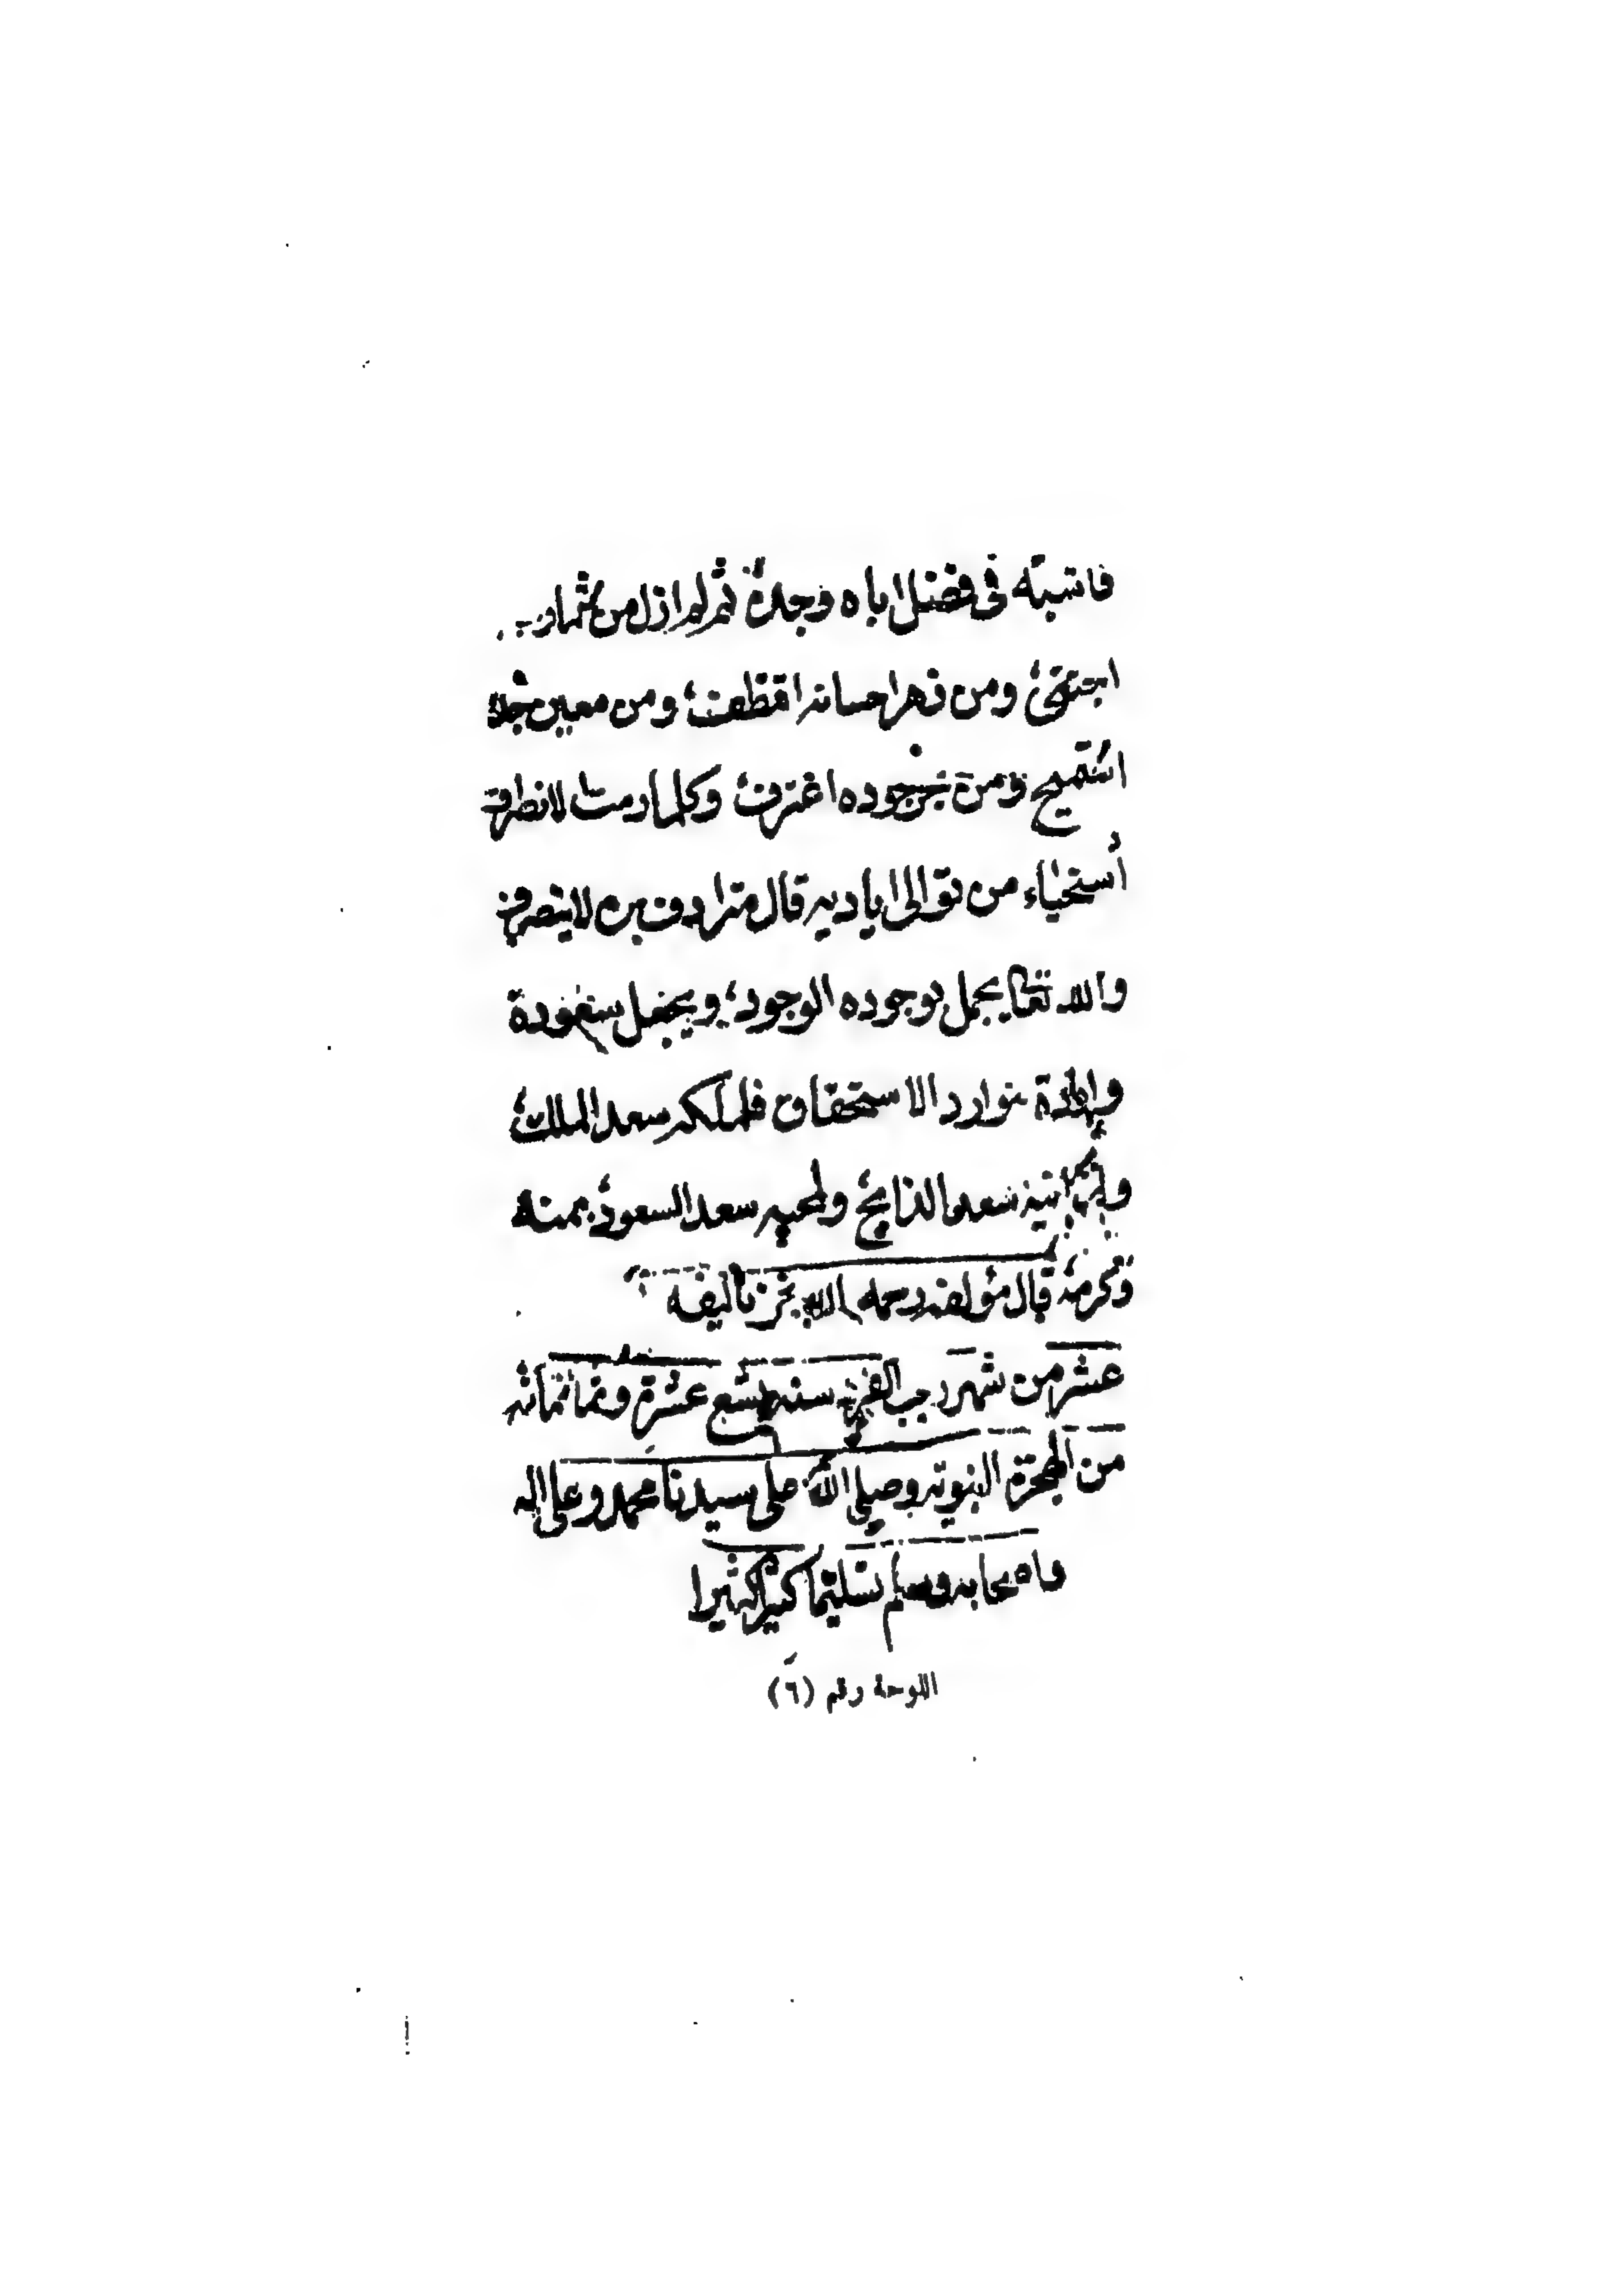 فاشبه في فضل اباه وجده ثم لم ازل من ثمار
اجتنى ومن زهر احسانه اقتطف ومن معين
استميح ومن بحر جوده اغترف وكلما رمت الانصراف
أستحياء من توالى اياديه قال مترادف بره لا ينصرف
والله تعالى يجمل بوجوده الوجود ويجعل
توارد الاستحقاق فلملكه سعد الملك
سعد الذابح ولمحبيه سعد السعود بمنه
وكرمه قال مؤلفه رحمه الله نجز تأليفه
عشر من شهر رجب الفرد سنة تسع عشرة وثمانمائه
من الهجرة النبويه وصلى الله على سيدنا محمد وعلى اله
واصحابه وسلم تسليما كثيرا كثيرا
اللوحة رقم (٦)